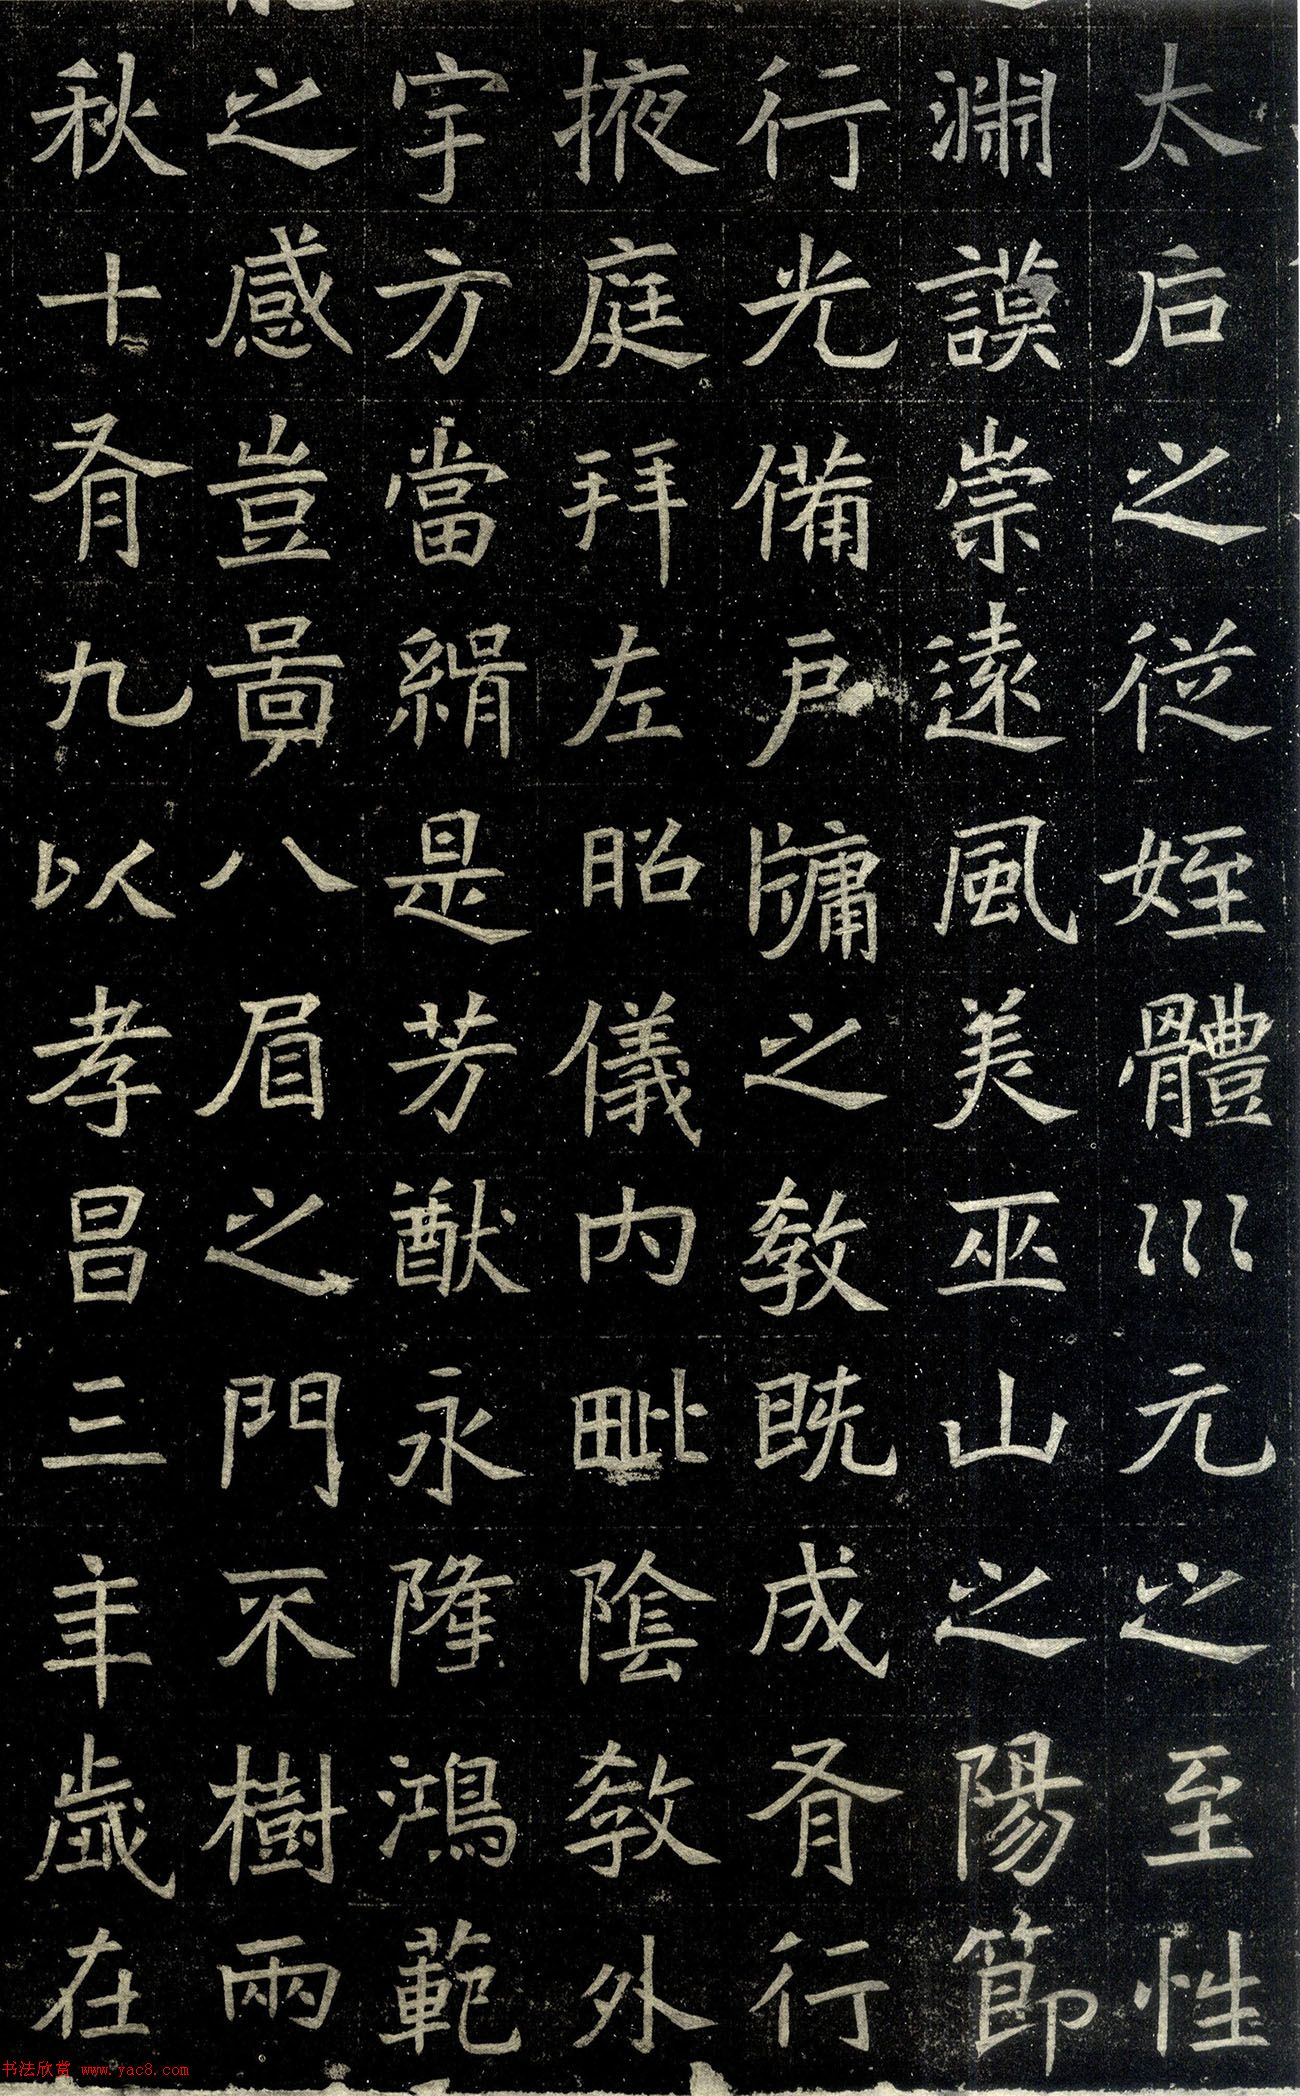 太后之従姪體巛元之至性
渊謨崇遠風美巫山之陽節
行光備戶牗之教既成有行
掖庭拜左昭儀内毗陰教外
宇方當緝是芳猷永隆鴻範
之感豈啚八眉之門不樹兩
秋十有九以孝昌三年歲在
书法欣赏 www.yac8.com